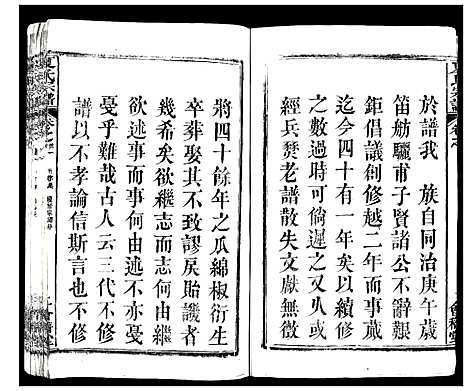 於譜我　族自同治庚午歲
笛舫驪甫子賢諸公不辭艱
鉅倡議創修越二年而藏事
迄今四十有一年矣以續修
之期而過時可倘遲之又久
經兵燹老譜散失文獻無可
將四十餘年之瓜綿椒衍生
卒葬娶其不致謬戾貽譏者
幾希矣欲繼志而志何由繼
欲述事而事何由述不亦憂
憂乎難哉古人云三代不修
譜以不孝論信斯言也不修